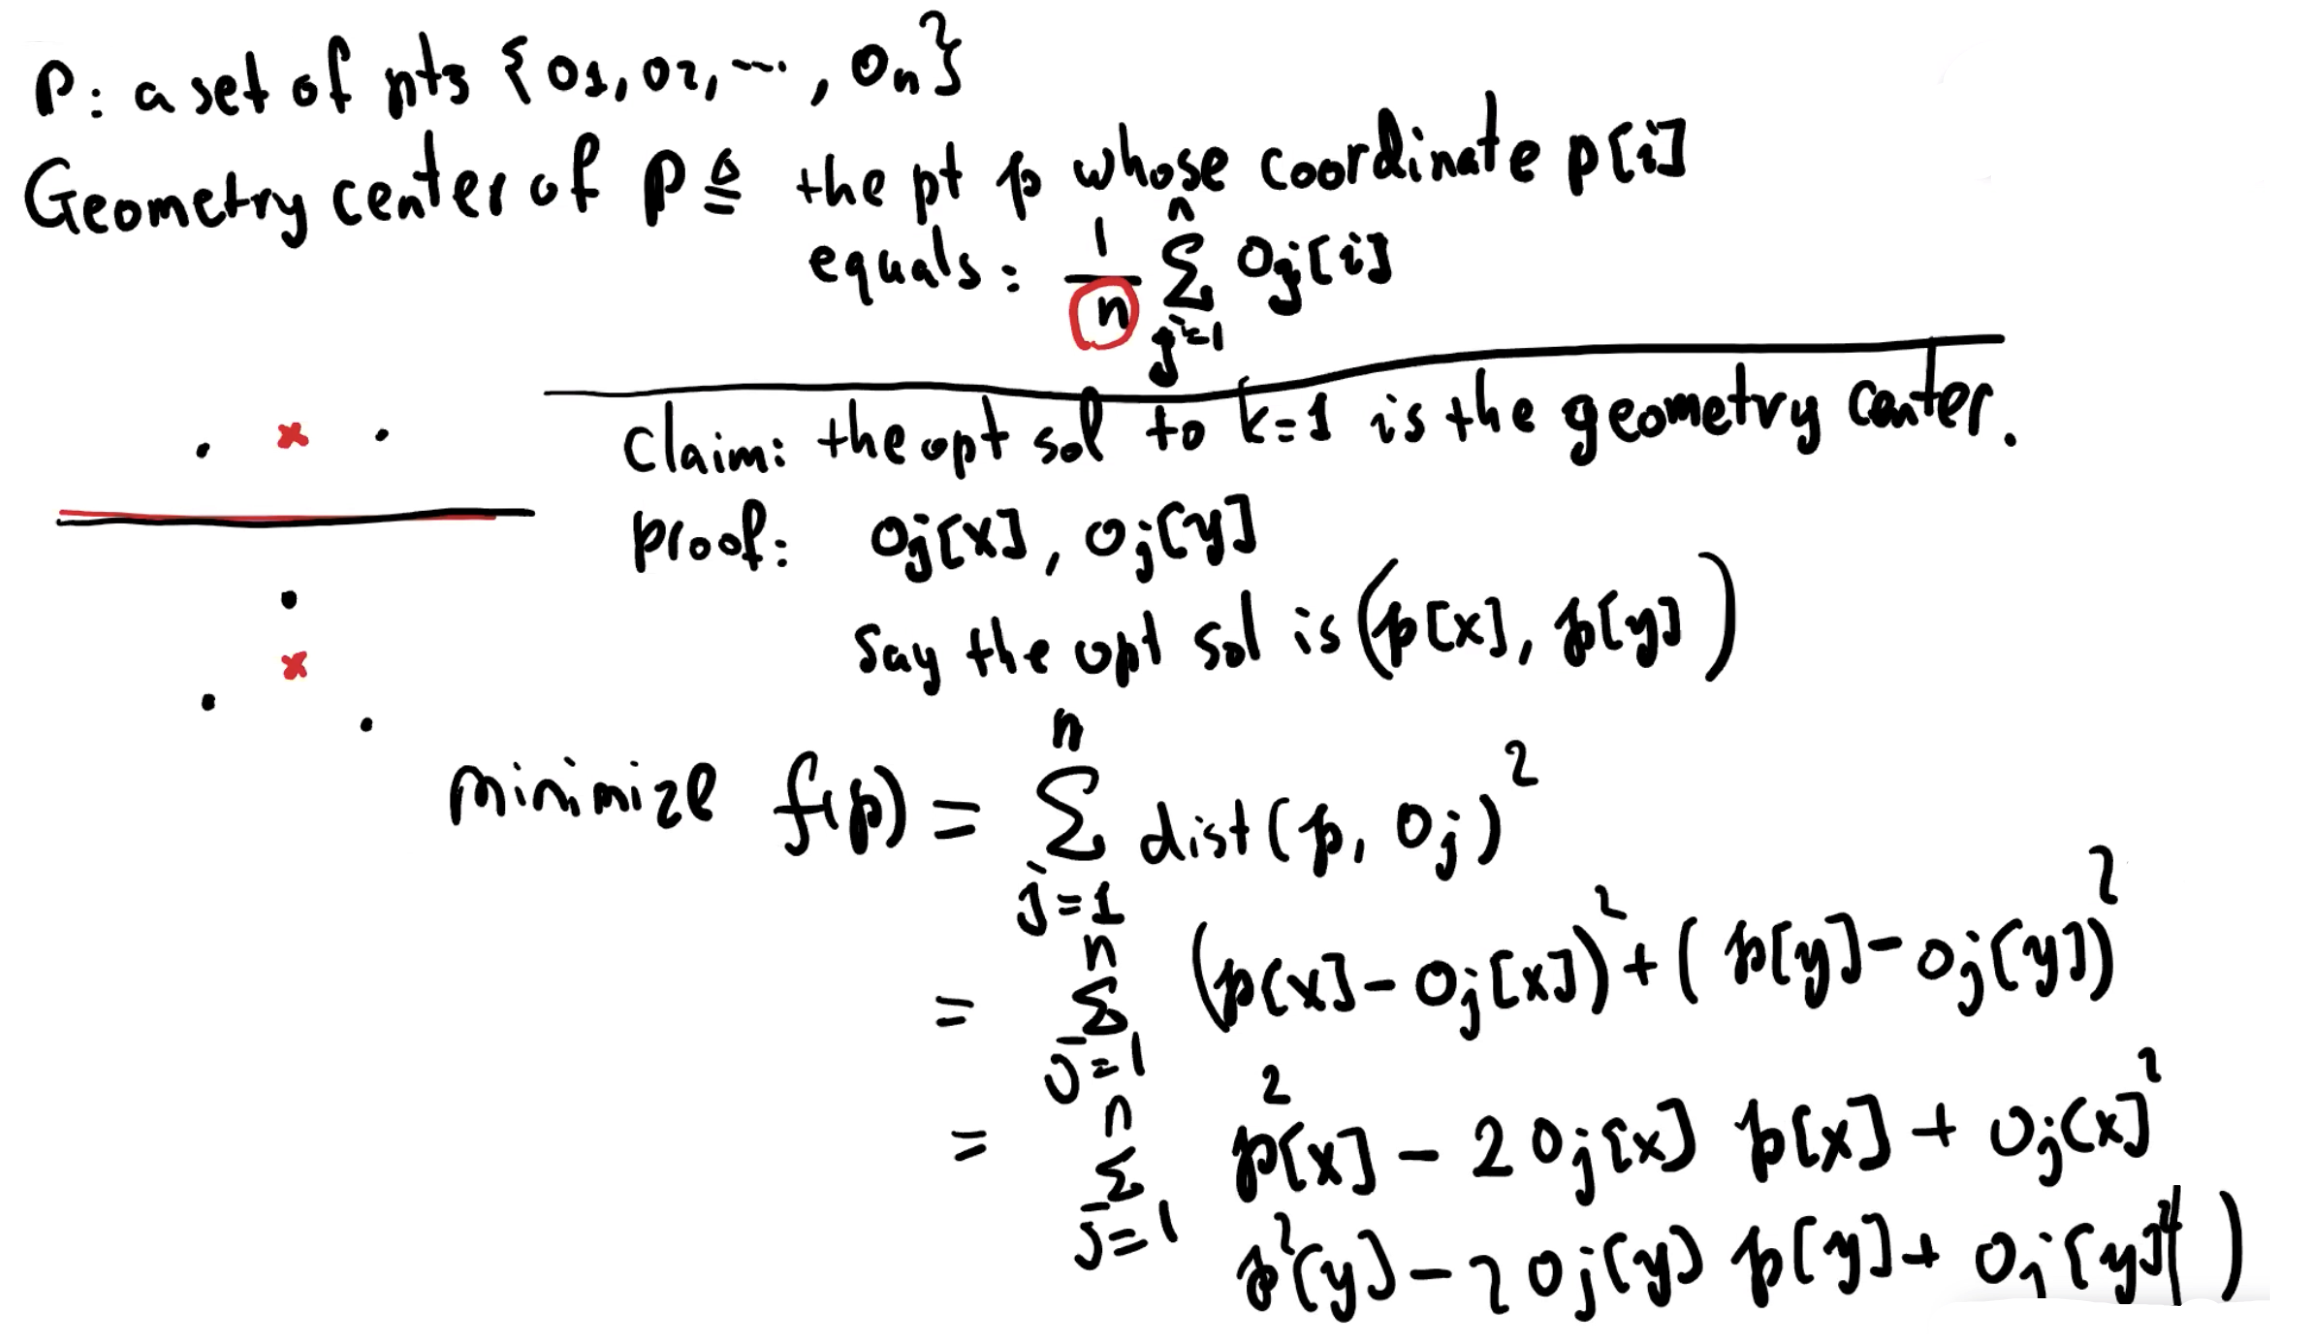 P: a set of pts {o1, o2, ..., on}
Geometry center of P ≜ the pt p whose coordinate p[i]
equals: 1/n Σ_{j=1}^{n} oj[i]
Claim: the opt sol to k=1 is the geometry center.
proof: oj[x], oj[y]
say the opt sol is (p[x], p[y])
minimize f(p) = Σ_{j=1}^{n} dist(p, oj)²
= Σ_{j=1}^{n} (p[x]-oj[x])² + (p[y]-oj[y])²
= Σ_{j=1}^{n} p²[x] - 2oj[x] p[x] + oj[x]²
p²[y] - 2oj[y] p[y] + oj[y]² )